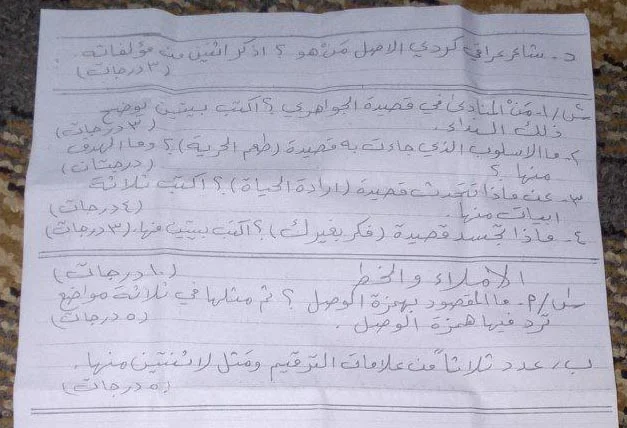 د- شاعر عراقي كردي الاصل مَنْ هو ؟ اذكر اثنين من مؤلفاته
(٣ درجات)
س/١- مَنْ المنادىٰ في قصيدة الجواهري ؟ اكتب بيتين توضح
ذلك النداء . (٣ درجات)
٢- ما الاسلوب الذي جاءت به قصيدة (طعم الحرية) ؟ وما الهدف
منها . ؟ (درجتان)
٣- عن ماذا تتحدث قصيدة (ارادة الحياة) ؟ اكتب ثلاثة
ابيات منها . (٤ درجات)
٤- ماذا تجسد قصيدة (فكر بغيرك) ؟ اكتب بيتين منها . (٣ درجات)
الاملاء والخط (١٠ درجات)
س/٢- ما المقصود بهمزة الوصل ؟ ثم مثلها في ثلاثة مواضع
ترد فيها همزة الوصل . (٥ درجات)
ب/ عدد ثلاثاً من علامات الترقيم ومَثل لاثنتين منها .
(٥ درجات)